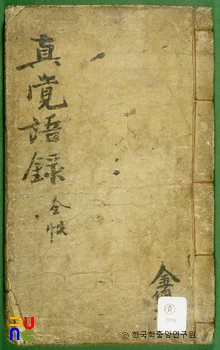 真覺語錄
全帙
© 한국학중앙연구원